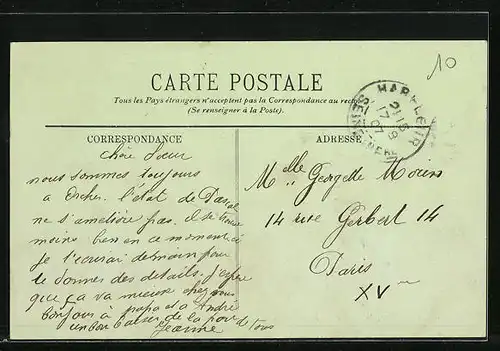 10
CARTE POSTALE
Tous les Pays étrangers n'acceptent pas la Correspondance au recto
(Se renseigner à la Poste).
HARFLEUR
SEINE-INFRE
CORRESPONDANCE
ADRESSE
chère sœur
nous sommes toujours
a l'état de
ne s'améliore pas. il se trouve
moins bien en ce moment ci
je demain pour
te donner des details. j'espère
que ça va mieux chez vous
bonjour à papa et a André
un bon baiser de la part de tous
Jeanne
Melle Georgette Morin
14 rue Gerbert 14
Paris
XV